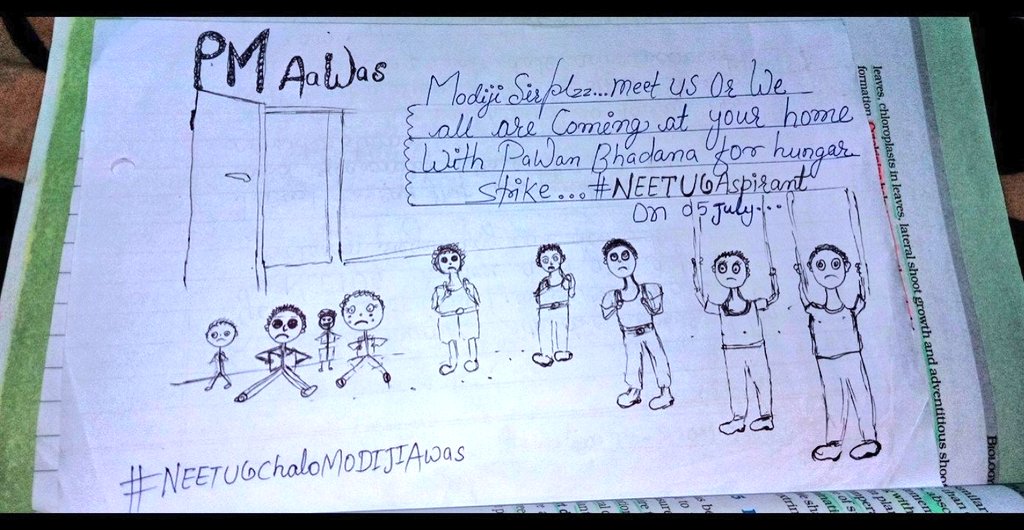 PM AaWas
Modiji Sir plzz...meet us Or We
all are Coming at your home
With Pawan Bhadana for hungar
strike...#NEETUGAspirant
On 05 July...
#NEETUGchaloMODIJIAwas
leaves, chloroplasts in leaves, lateral shoot growth and adventitious shoo
formation.